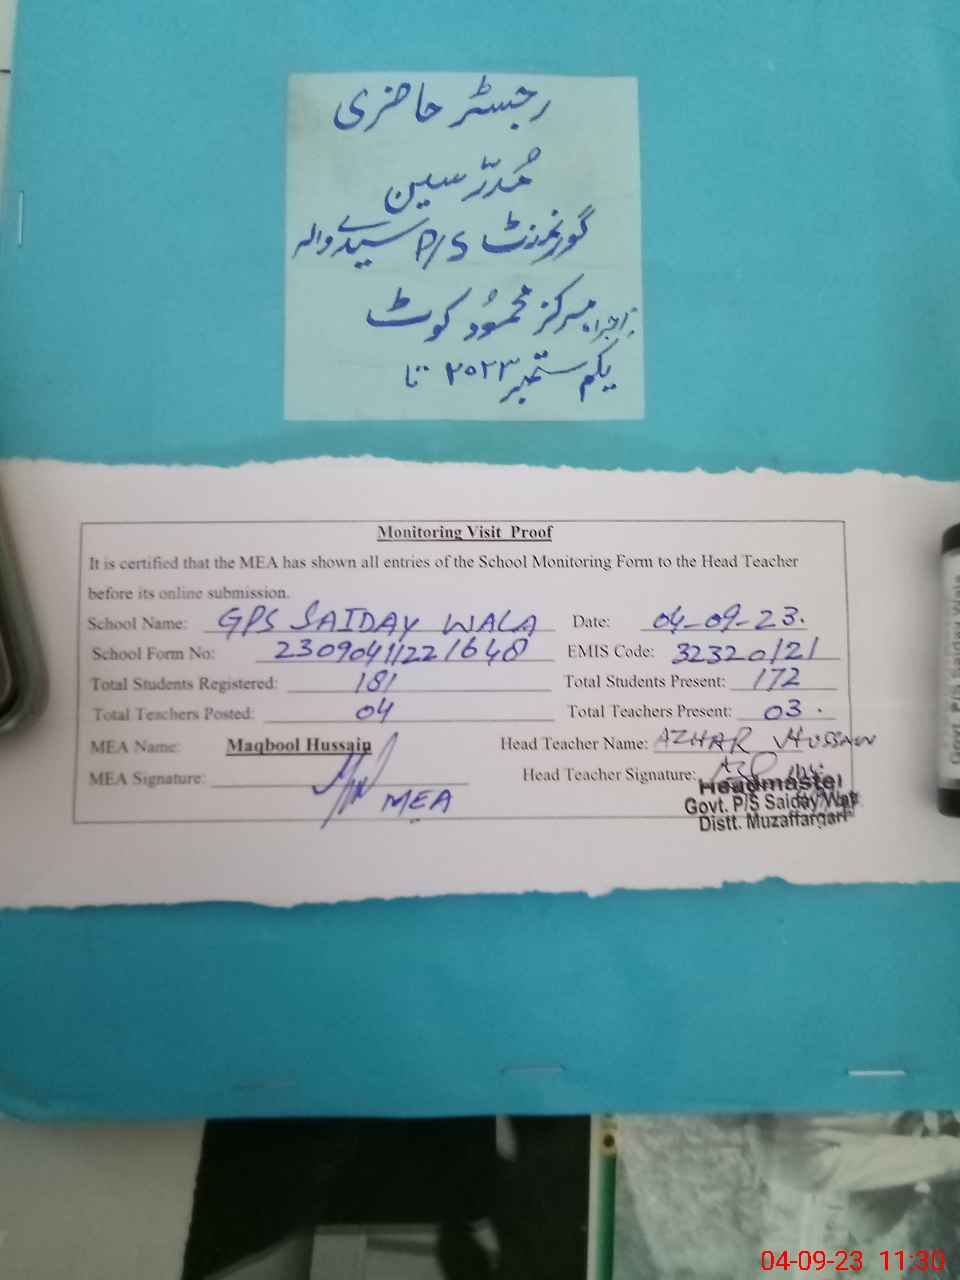 رجسٹر حاضری
مُدرّسین
گورنمنٹ P/S سیدے والہ
مرکز محمُود کوٹ
یکم ستمبر ۲۰۲۳ تا
Monitoring Visit Proof
It is certified that the MEA has shown all entries of the School Monitoring Form to the Head Teacher
before its online submission.
School Name: GPS SAIDAY WALA Date: 04-09-23.
School Form No: 23090411221648 EMIS Code: 32320121
Total Students Registered: 181 Total Students Present: 172
Total Teachers Posted: 04 Total Teachers Present: 03.
MEA Name: Maqbool Hussain Head Teacher Name: AZHAR HUSSAIN
MEA Signature: MEA Head Teacher Signature:
Headmaster
Govt. P/S Saiday Wala
Distt. Muzaffargarh
Govt. P/S Saiday Wala
04-09-23 11:30